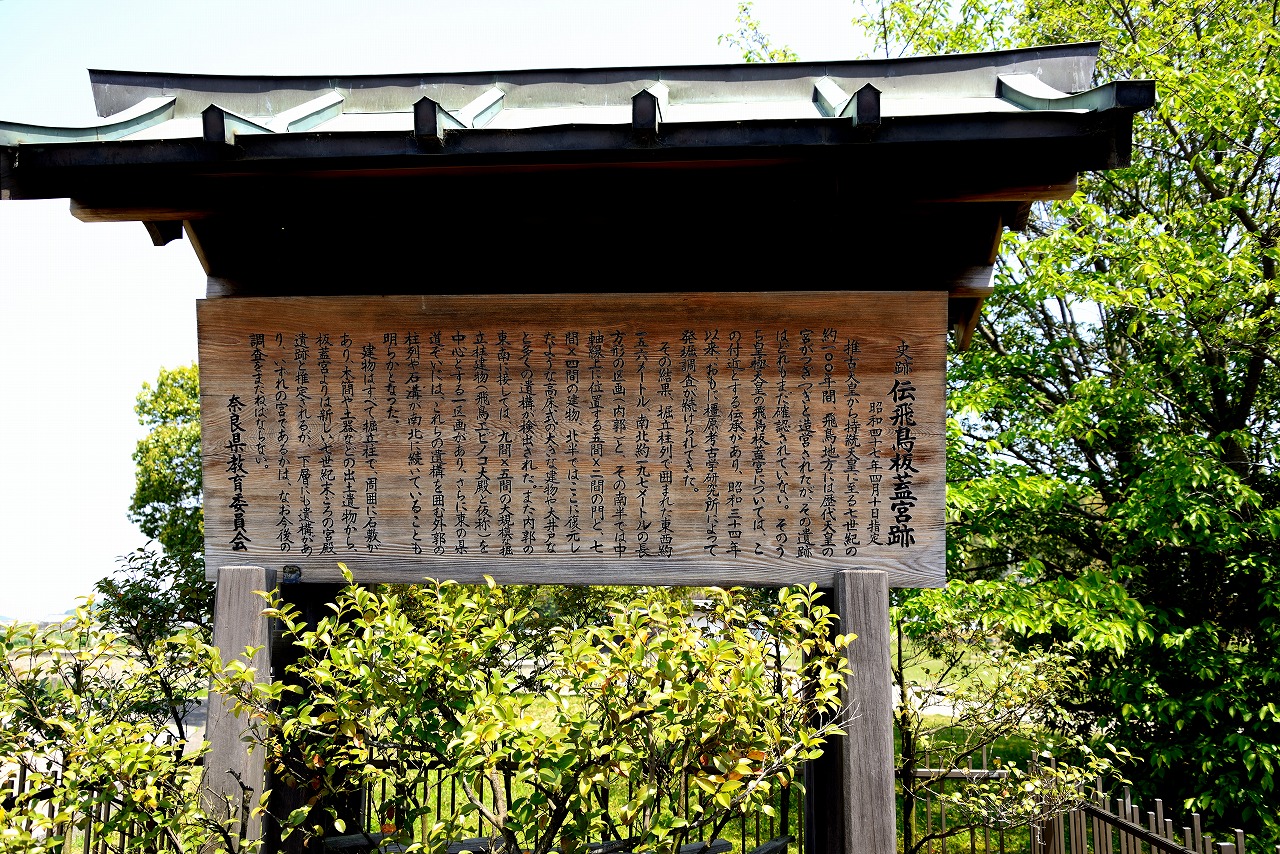 史跡 伝飛鳥板蓋宮跡
昭和四十七年四月十日指定
推古天皇から持統天皇に至る七世紀の
約一〇〇年間、飛鳥地方には歴代天皇の
宮がつぎつぎと造営されたが、その遺跡
はどれもまだ確認されていない。そのう
ち皇極天皇の飛鳥板蓋宮については、こ
の付近とする伝承があり、昭和三十四年
以来、おもに橿原考古学研究所によって
発掘調査が続けられてきた。
その結果、掘立柱列で囲まれた東西約
一五六メートル、南北約一九七メートルの長
方形の区画(内郭)と、その南半では中
軸線上に位置する五間×二間の門と、七
間×四間の建物、北半ではここに復元し
たような高床式の大きな建物や大井戸な
ど多くの遺構が検出された。また内郭の
東南に接しては、九間×五間の大規模掘
立柱建物(飛鳥エビノコ大殿と仮称)を
中心とする一区画があり、さらに東の県
道ぞいには、これらの遺構を囲む外郭の
柱列や石溝が南北に続いていることも
明らかとなった。
建物はすべて掘立柱で、周囲に石敷が
あり、木簡や土器などの出土遺物から、
板蓋宮よりは新しい七世紀末ごろの宮殿
遺跡と推定されるが、下層にも遺構があ
り、いずれの宮であるかは、なお今後の
調査をまたねばならない。
奈良県教育委員会